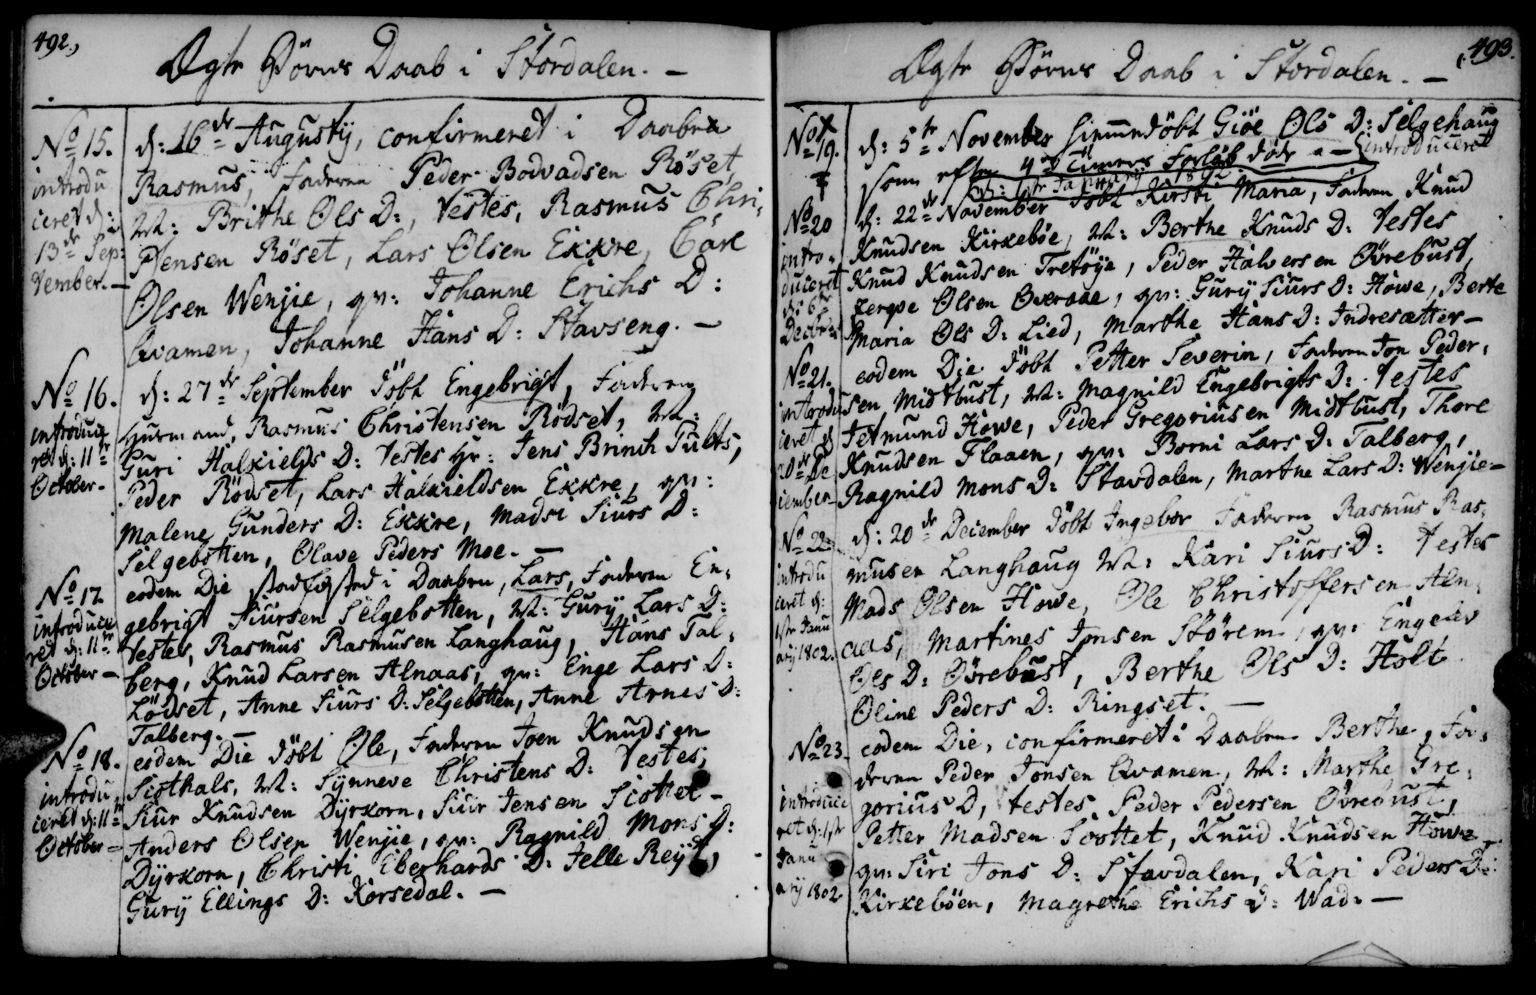 492.,
Ægte Börns Daab i Stordalen. —
No 15.
introdu
ceret d:
13de Sep-
tember. —
d: 16de Augustij, confirmeret i Daaben
Rasmus, Faderen Peder Bodvadsen Röset,
M: Brithe Ols D:, Testes, Rasmus Chri-
stensen Röset, Lars Olsen Ekkre, Care
Olsen Wenjie, qv: Johanne Erichs D:
Qvamen, Johanne Hans D: Stavseng. —
No 16.
introduce
ret d: 11te
October —
d: 27de September döbt Engebrigt, Faderen
Huusmand, Rasmus Christensen Rödset, M:
Guri Halkields D: Testes Hr: Jens Brinch Tubts,
Peder Rödset, Lars Halkieldsen Ekkre, qv:
Malene Gunders D: Ekkre, Madsi Siurs D:
Selgebotten, Olave Peders Moe. —
No 17
introduce
ret d: 11te
October —
eodem Die stadfæsted i Daaben, Lars, Faderen En-
gebrigt Siursen Selgebotten, M: Gurij Lars D:
Testes, Rasmus Rasmusen Langhaug, Hans Tal-
berg, Knud Larsen Alnaas, qv: Enge Lars D:
Lödset, Anne Siurs D: Selgebotten, Anne Arnes D:
Talberg. —
No 18.
introdu
ceret d: 11te
October —
eodem Die döbt Ole, Faderen Joen Knudsen
Siothals, M: Synneve Christens D: Testes,
Siur Knudsen Dyrkorn, Siur Jensen Siottet —
Anders Olsen Wenjie, qv: Ragnild Mons D:
Dyrkorn, Christi Eberhards D: Jelle Reyt,
Gurij Ellings D: Korsedal. —
493.
Ægte Börns Daab i Stordalen. —
No 19.
d: 5te November hiemmedöbt Giöe Ols D: Selgehaug
som efter 4re Timers Forlöb döde — introduceret
d: 1ste Januarij 1802
No 20
intro-
duceret
d: 6te
December
d: 22de November döbt Kirsti Maria, Faderen Knud
Knudsen Kirkeböe, M: Berthe Knuds D: Testes
Knud Knudsen Tretöye, Peder Halversen Övrebust,
Jergve Olsen Overaae, qv: Gurij Siurs D: Howe, Berte
Maria Ols D: Lied, Marthe Hans D: Indresætter —
No 21.
introdu
ceret d
20de De
cember
eodem Die döbt Petter Severin, Faderen Jon Peder-
sen Midtbust, M: Magnild Engebrigts D: Testes
Jetmund Howe, Peder Gregoriusen Midtbust, Thore
Knudsen Flaaen, qv: Borni Lars D: Talberg,
Ragnild Mons D: Stavdalen, Marthe Lars D: Wenjie —
No 22
introdu
ceret d:
1ste Janu
arij 1802.
d: 20de December döbt Ingebor Faderen Rasmus Ras-
musen Langhaug M: Kari Siurs D: Testes
Mads Olsen Howe, Ole Christoffersen Aln-
aas, Martines Jonsen Störem, qv: Engelev
Ols D: Övrebust, Berthe Ols D: Holt
Oline Peders D: Ringset. —
No 23.
introduce
ret d: 1ste
Janu
arij 1802
eodem Die, confirmeret i Daaben Berthe, Fa-
deren Peder Jonsen Qvamen, M: Marthe Gre-
gorius D, Testes Peder Pedersen Övrebust,
Petter Madsen Siottet, Knud Knudsen Howe
qv: Siri Jons D: Stavdalen, Kari Peders D:
Kirkeböen, Magrethe Erichs D: Wad. —